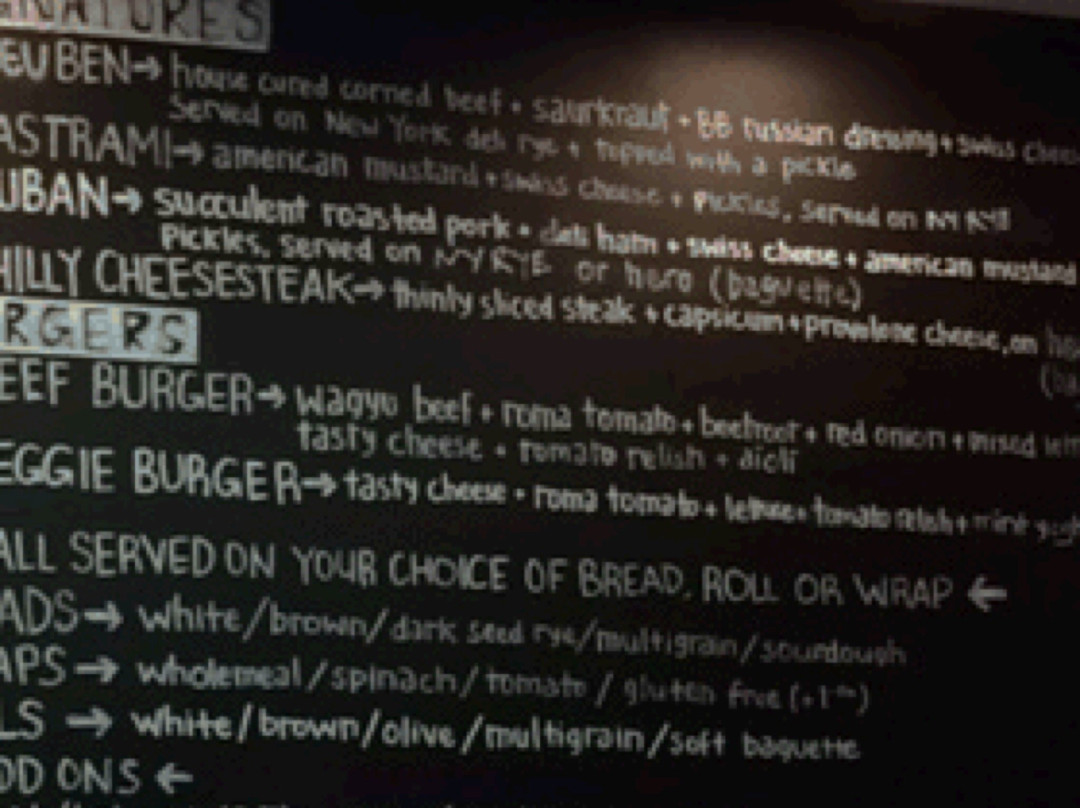 GNATURES
EUBEN→ house cured corned beef + saurkraut + BB russian dressing + swiss chees
Served on New York deli rye + topped with a pickle
ASTRAMI→ american mustard + swiss cheese + Pickles, served on NY RYE
UBAN→ succulent roasted pork + deli ham + swiss cheese + american mustard
Pickles, served on NY RYE or hero (baguette)
HILLY CHEESESTEAK→ thinly sliced steak + capsicum + provolone cheese, on
RGERS
EEF BURGER→ wagyu beef + roma tomato + beetroot + red onion + mixed
tasty cheese + tomato relish + aioli
EGGIE BURGER→ tasty cheese + roma tomato + lettuce + tomato relish + mint
ALL SERVED ON YOUR CHOICE OF BREAD, ROLL OR WRAP ←
ADS→ white/brown/dark seed rye/multigrain/sourdough
APS→ wholemeal/spinach/tomato/gluten free
LS → white/brown/olive/multigrain/soft baguette
DD ONS ←